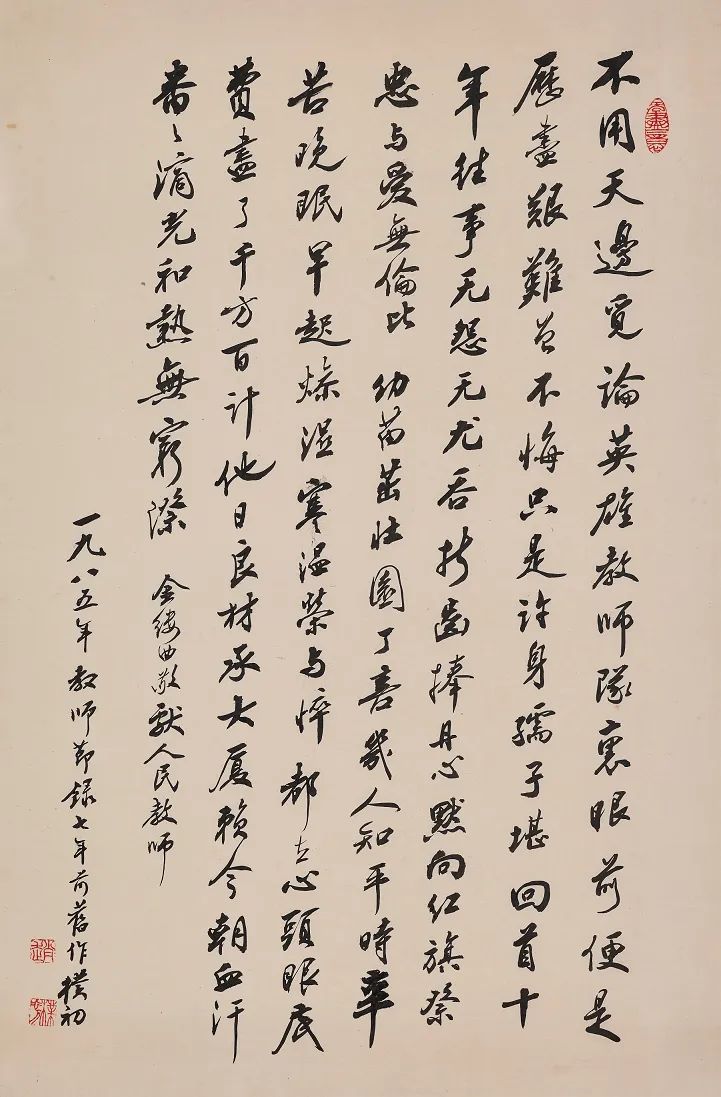 不用天邊覓論英雄教師隊裏眼前便是
歷盡艱難曾不悔只是許身孺子堪回首十
年往事无怨无尤吞折齒捧丹心默向红旗祭
忠与愛無倫比 幼苗茁壯園丁喜幾人知平時辛
苦晚眠早起燥湿寒温榮与悴都在心頭眼底
費盡了千方百计他日良材承大廈賴今朝血汗
番々滴光和熱無窮際 金缕曲敬獻人民教師
一九八五年教師節録七年前舊作樸初